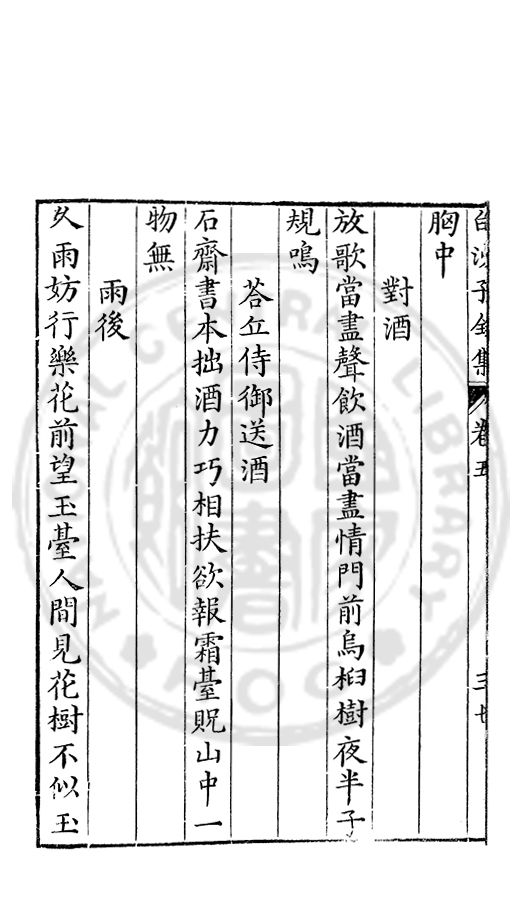 白沙子全集 卷五 三七
胸中
對酒
放歌當盡聲飲酒當盡情門前烏桕樹夜半子
規鳴
荅丘侍御送酒
石齋書本拙酒力巧相扶欲報霜臺貺山中一
物無
雨後
久雨妨行樂花前望玉臺人間見花樹不似玉
NATIONAL CENTRAL LIBRARY